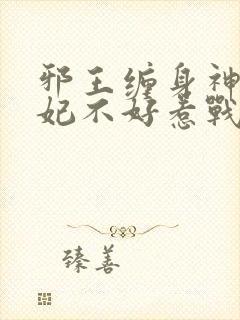 邪王缠身神
妃不好惹戰
臻善